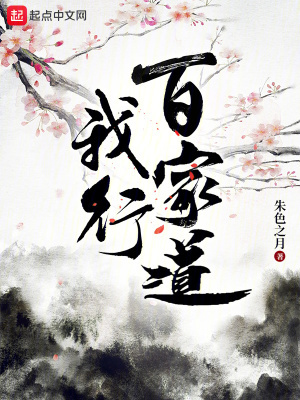 起 起点中文网
百家道
我行
朱色之月 著